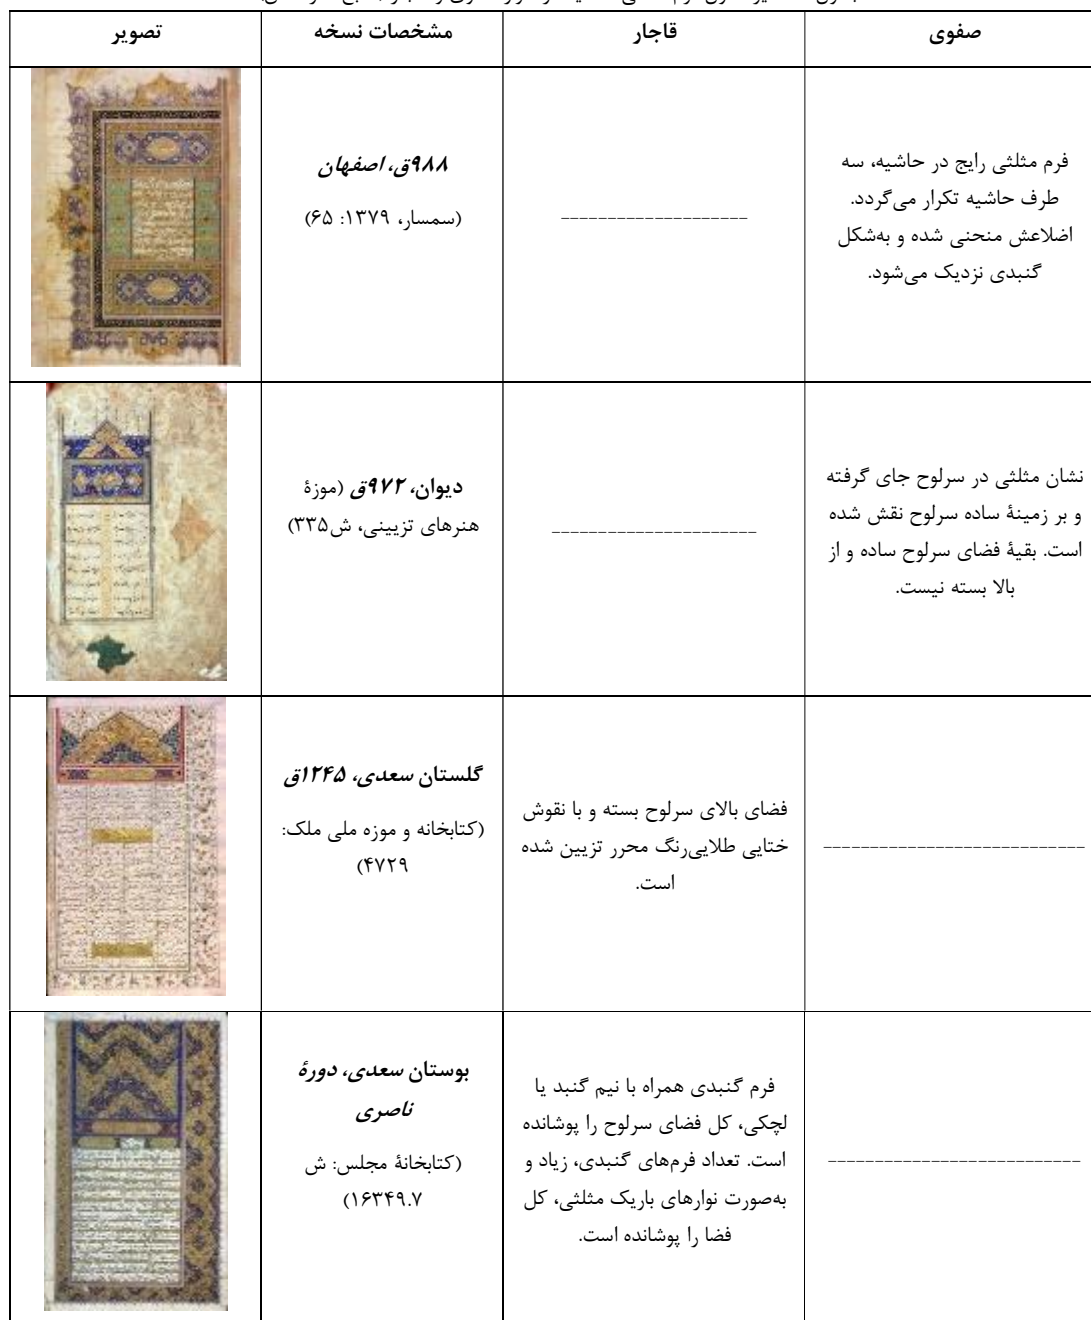 صفوی
قاجار
مشخصات نسخه
تصویر
فرم مثلثی رایج در حاشیه، سه
طرف حاشیه تکرار می‌گردد.
اضلاعش منحنی شده و به‌شکل
گنبدی نزدیک می‌شود.
--------------------
۹۸۸ق، اصفهان
(سمسار، ۱۳۷۹: ۶۵)
نشان مثلثی در سرلوح جای گرفته
و بر زمینهٔ ساده سرلوح نقش شده
است. بقیهٔ فضای سرلوح ساده و از
بالا بسته نیست.
----------------------
دیوان، ۹۷۲ق (موزهٔ
هنرهای تزیینی، ش۳۳۵)
----------------------------
فضای بالای سرلوح بسته و با نقوش
ختایی طلایی‌رنگ محرر تزیین شده
است.
گلستان سعدی، ۱۲۴۵ق
(کتابخانه و موزه ملی ملک:
۴۷۲۹)
---------------------------
فرم گنبدی همراه با نیم گنبد یا
لچکی، کل فضای سرلوح را پوشانده
است. تعداد فرم‌های گنبدی، زیاد و
به‌صورت نوارهای باریک مثلثی، کل
فضا را پوشانده است.
بوستان سعدی، دورهٔ
ناصری
(کتابخانهٔ مجلس: ش
۱۶۳۴۹.۷)